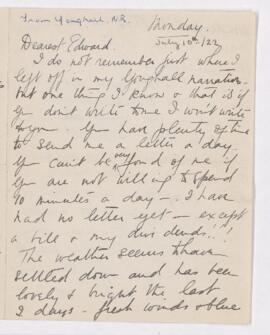 From Youghall. N.R.
Monday.
July 10th/22
Dearest Edward.
I do not remember just where I
left off in my Youghall narration
but one thing I know & that is if
you don't write to me I won't write
to you. You have plenty of time
to send me a letter a day.
You can't be very fond of me if
you are not willing to spend
10 minutes a day — I have
had no letter yet — except
a bill & my dividends!!!
The weather seems to have
settled down and has been
lovely & bright the last
2 days - fresh winds & blue